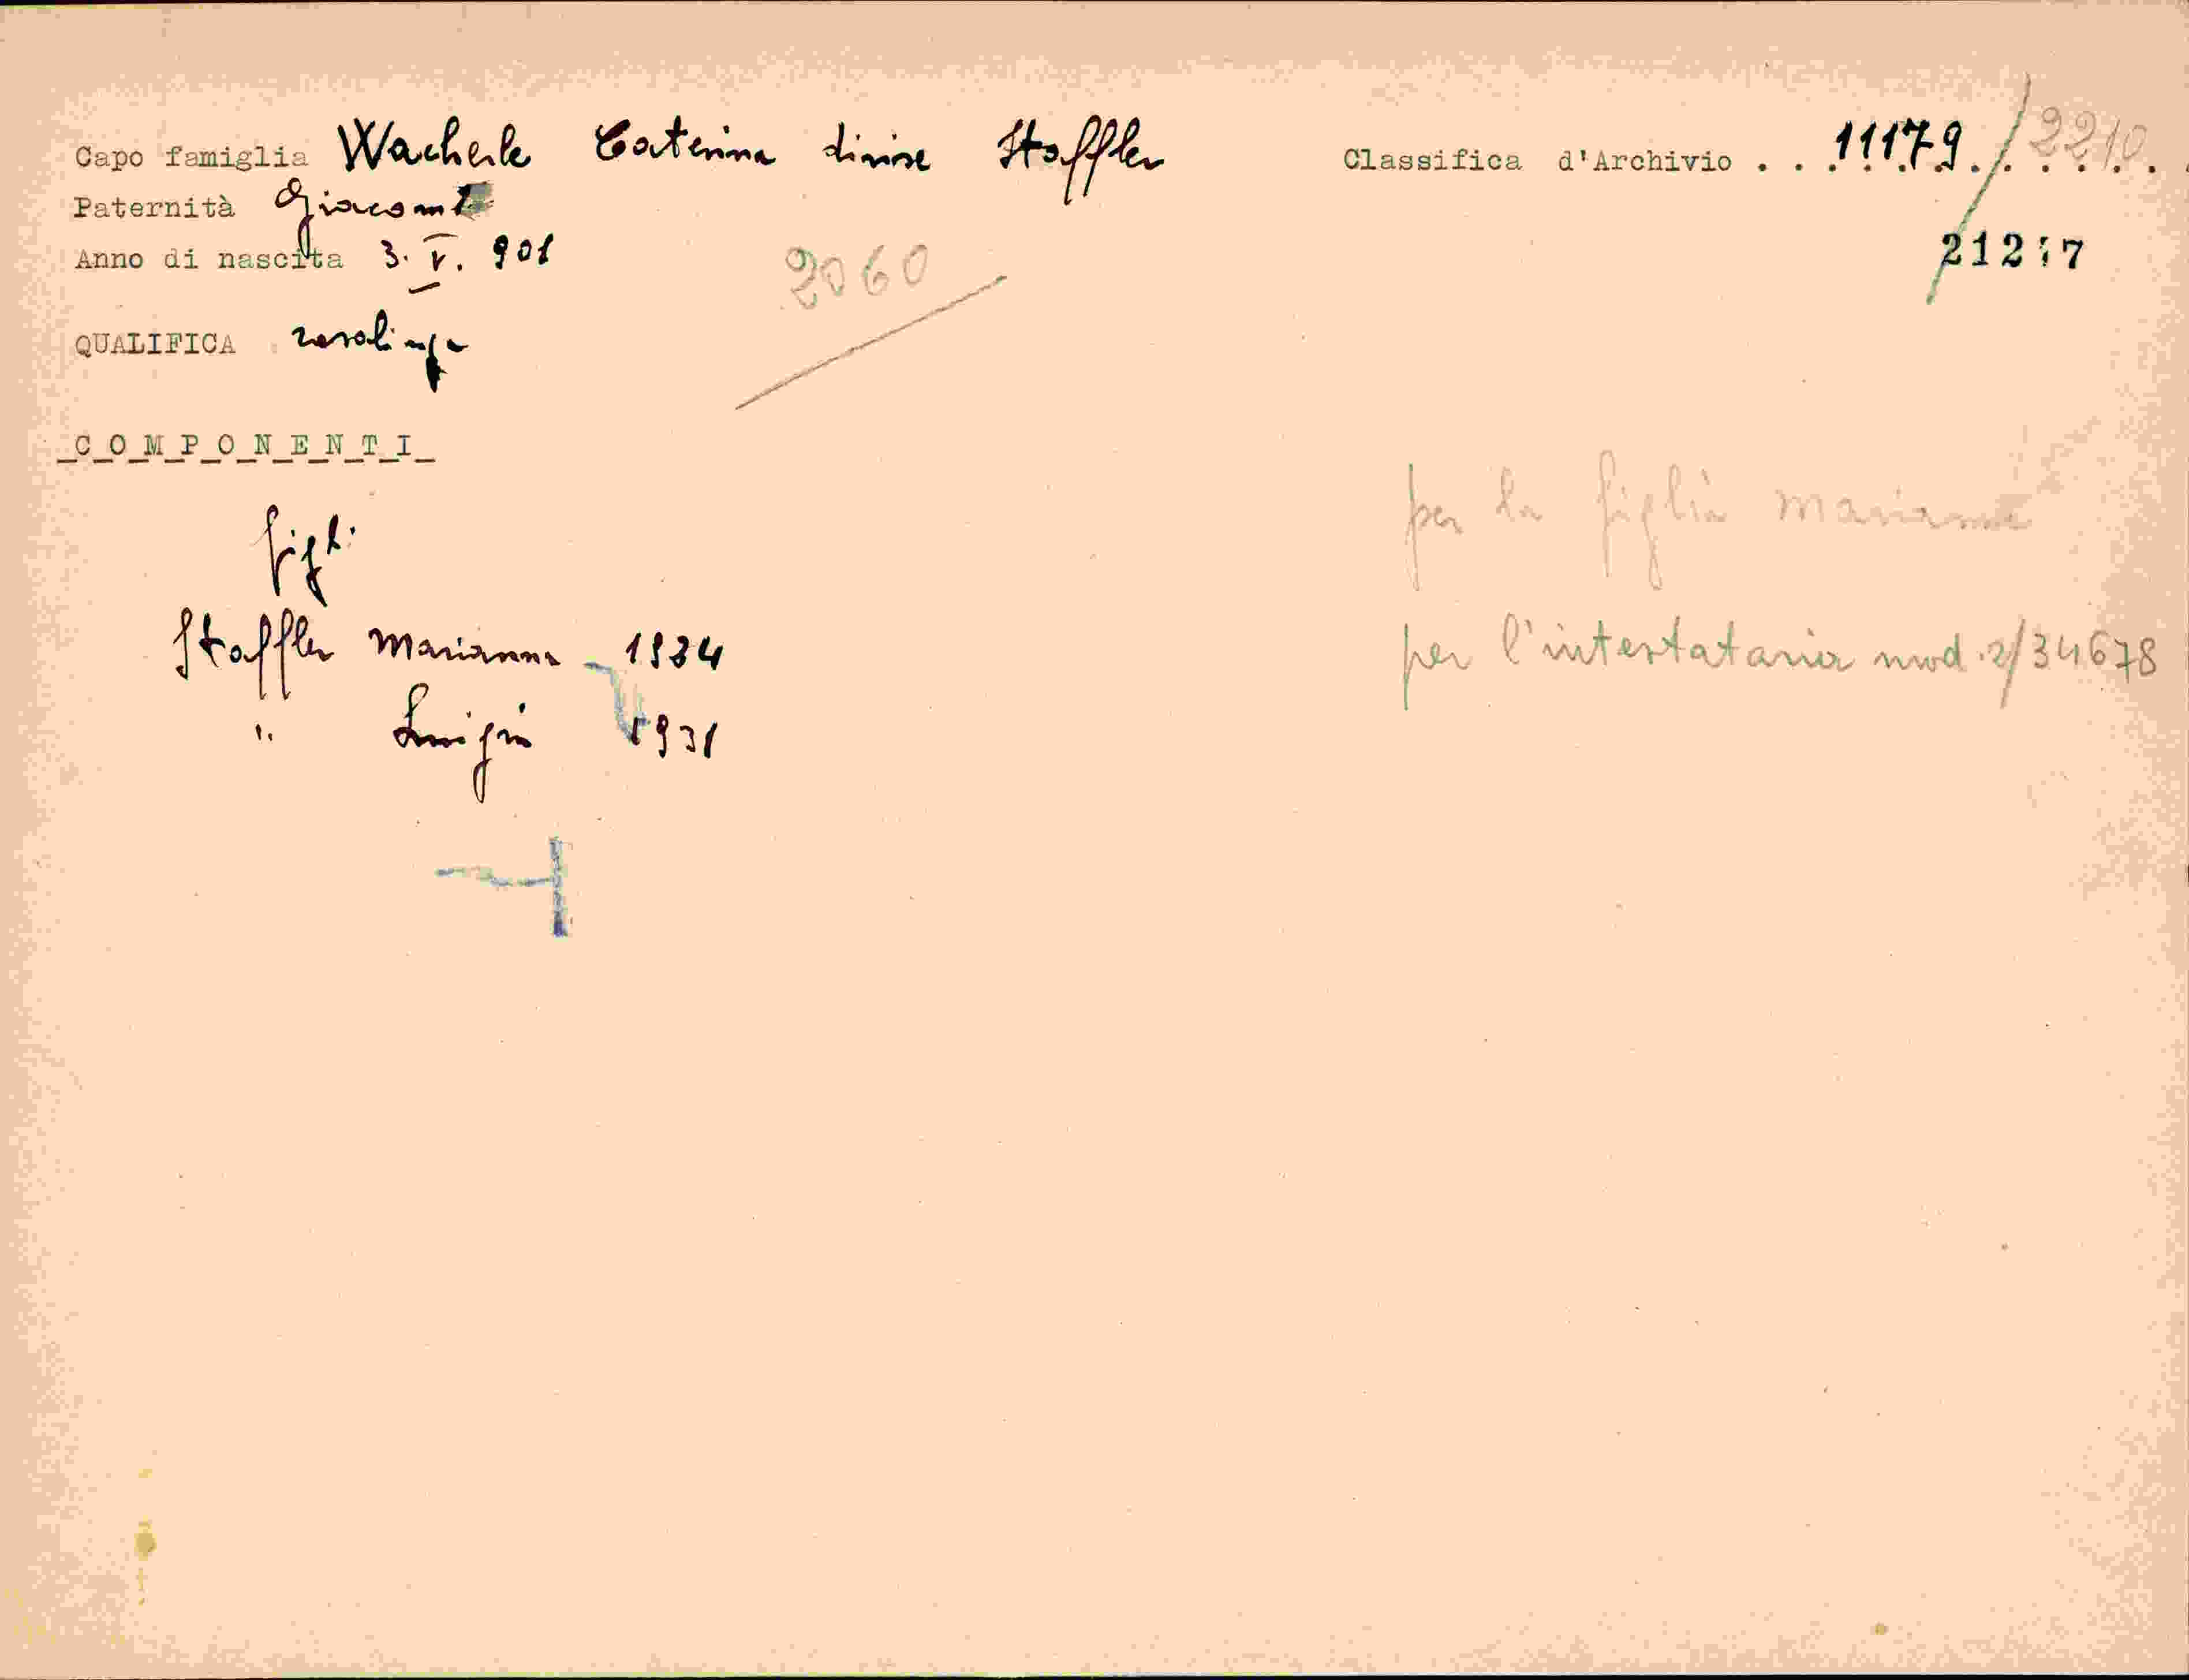 Capo famiglia Wacherle Caterina divise Staffler
Classifica d'Archivio . . 11179 / 2210
Paternità Giacomo
Anno di nascita 3. V. 901
2060
212 7
QUALIFICA casalinga
C O M P O N E N T I
figli
per la figlia Marianna
Staffler Marianna - 1924
per l'intestataria mod. 2/34678
" Luigia 1931